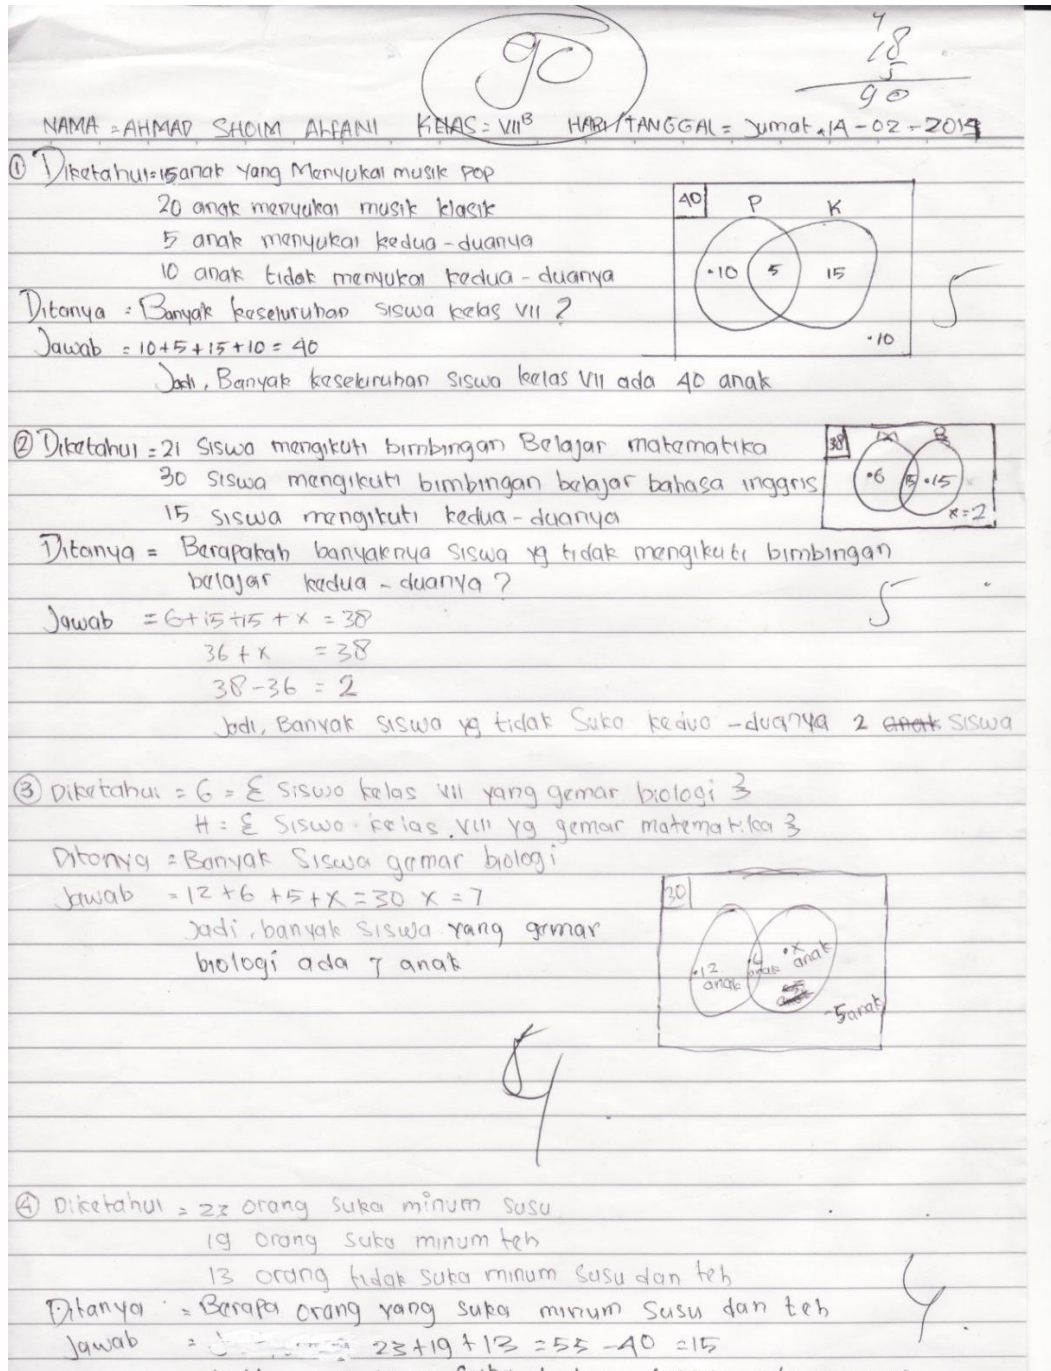 90
4
18
5
90
NAMA = AHMAD SHOIM ALFANI KELAS = VII B HARI/TANGGAL = Jumat, 14-02-2014
① Diketahui = 15 anak yang Menyukai musik pop
20 anak menyukai musik klasik
5 anak menyukai kedua-duanya
10 anak tidak menyukai kedua-duanya
40 P K
•10 5 15
•10
5
Ditanya = Banyak keseluruhan siswa kelas VII ?
Jawab = 10+5+15+10 = 40
Jadi, Banyak keseluruhan siswa kelas VII ada 40 anak
② Diketahui = 21 Siswa mengikuti bimbingan Belajar matematika
30 Siswa mengikuti bimbingan belajar bahasa inggris
15 siswa mengikuti kedua-duanya
38 M B
•6 15 •15
x=2
Ditanya = Berapakah banyaknya siswa yg tidak mengikuti bimbingan
belajar kedua-duanya ?
5
Jawab = 6+15+15+x = 38
36+x = 38
38-36 = 2
Jadi, Banyak siswa yg tidak Suka kedua-duanya 2 anak siswa
③ Diketahui = G = { Siswa kelas VII yang gemar biologi }
H = { Siswa kelas VIII yg gemar matematika }
Ditanya = Banyak Siswa gemar biologi
Jawab = 12+6+5+x=30 x=7
Jadi, banyak siswa yang gemar
biologi ada 7 anak
30
•12 anak
•6 anak
•x anak
-5 anak
4
④ Diketahui = 23 orang suka minum susu
19 orang suka minum teh
13 orang tidak suka minum susu dan teh
Ditanya = Berapa orang yang suka minum susu dan teh
4
Jawab = 23+19+13 = 55 -40 =15